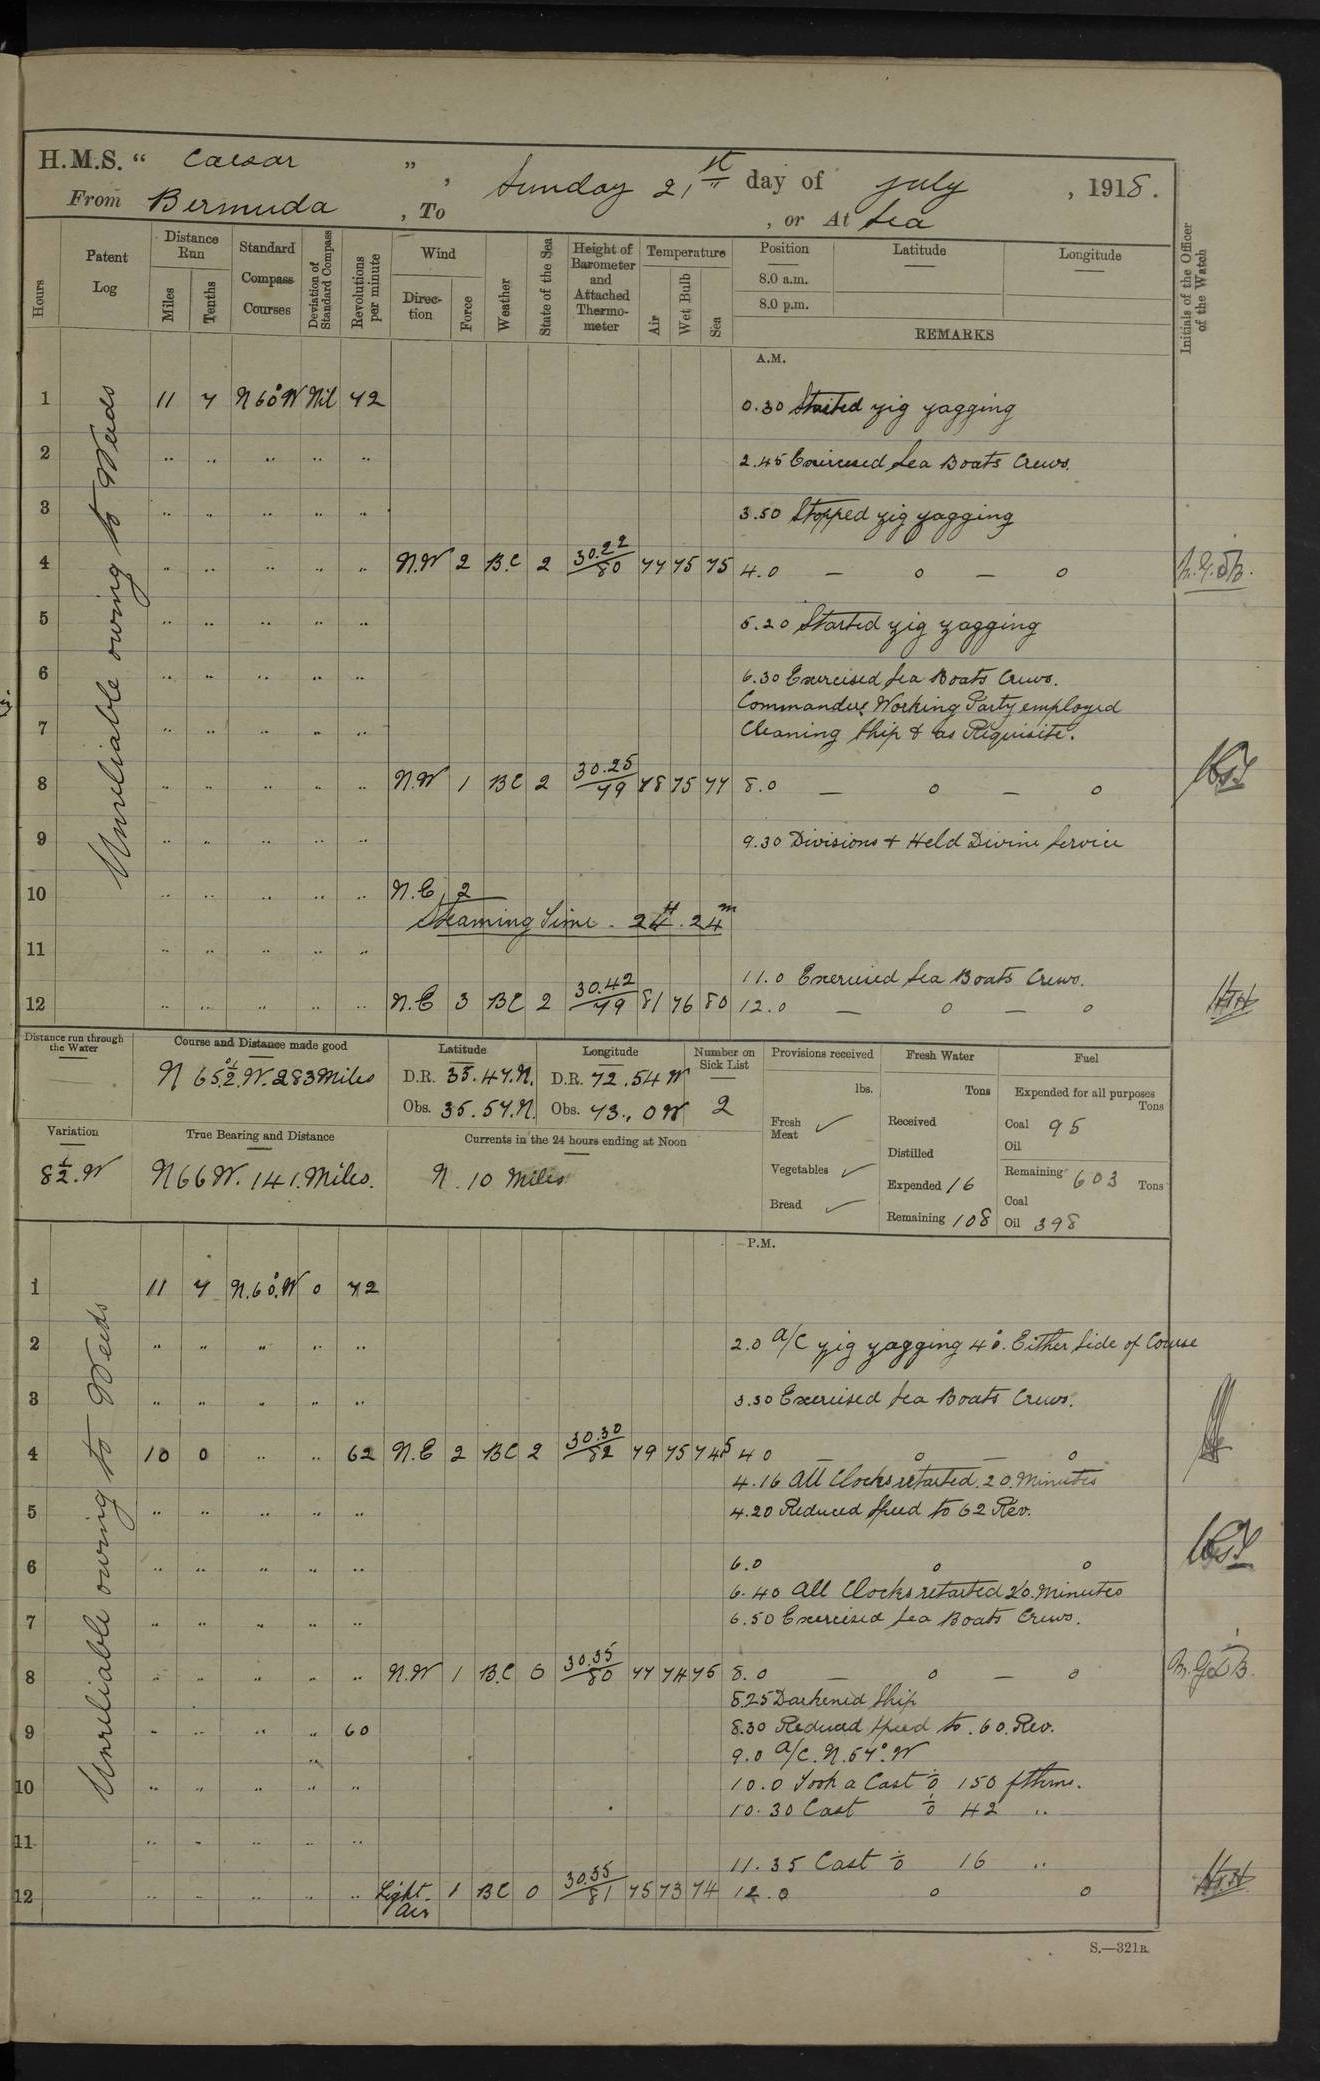 H.M.S. " Caesar ", Sunday 21st day of July, 1918.
From Bermuda, To , or At Sea
Hours
Patent Log
Distance Run
Miles
Tenths
Standard Compass Courses
Deviation of Standard Compass
Revolutions per minute
Wind
Direction
Force
Weather
State of the Sea
Height of Barometer and Attached Thermometer
Temperature
Air
Wet Bulb
Sea
Position
8.0 a.m.
8.0 p.m.
Latitude
Longitude
REMARKS
Initials of the Officer of the Watch
A.M.
Unreliable owing to Weeds
1 11 7 N 60° W Nil 72 0.30 Started zig zagging
2 .. .. .. .. .. 2.45 Exercised Sea Boats Crews.
3 .. .. .. .. .. 3.50 Stopped zig zagging
4 .. .. .. .. .. N.W 2 B.C 2 30.22/80 77 75 75 4.0 — o — o
5 .. .. .. .. .. 5.20 Started zig zagging
6 .. .. .. .. .. 6.30 Exercised Sea Boats Crews.
Commanders Working Party employed
7 .. .. .. .. .. Cleaning Ship & as Requisite.
8 .. .. .. .. .. N.W 1 BC 2 30.25/79 78 75 77 8.0 — o — o
9 .. .. .. .. .. 9.30 Divisions + Held Divine Service
10 .. .. .. .. .. N.E 2
Steaming Time - 24H. 24m
11 .. .. .. .. ..
11.0 Exercised Sea Boats Crews.
12 .. .. .. .. .. N.E 3 BC 2 30.42/79 81 76 80 12.0 — o — o
Distance run through the Water
Course and Distance made good
N 65½° W. 283 Miles
Latitude
D.R. 35.47.N.
Obs. 35.57.N.
Longitude
D.R. 72.54 W
Obs. 73., 0 W
Number on Sick List
2
Provisions received
lbs.
Fresh Meat ✓
Vegetables ✓
Bread ✓
Fresh Water
Tons
Received
Distilled
Expended 16
Remaining 108
Fuel
Expended for all purposes
Tons
Coal 95
Oil
Remaining 603 Tons
Coal
Oil 398
Variation
8½.W
True Bearing and Distance
N 66 W. 141. Miles.
Currents in the 24 hours ending at Noon
N. 10 Miles
P.M.
Unreliable owing to Weeds
1 11 7 N.60°.W 0 72
2 .. .. .. .. .. 2.0 a/c zig zagging 40°. Either Side of Course
3 .. .. .. .. .. 3.30 Exercised Sea Boats Crews.
4 10 0 .. .. 62 N.E 2 BC 2 30.30/82 79 75 74.5 4 0 — o — o
4.16 All Clocks retarted. 20. Minutes
5 .. .. .. .. .. 4.20 Reduced Speed to 62 Rev.
6 .. .. .. .. .. 6.0 o o
6.40 All Clocks retarted 20. Minutes
7 .. .. .. .. .. 6.50 Exercised Sea Boats Crews.
8 .. .. .. .. .. N.W 1 B.C 0 30.35/80 77 74 75 8.0 — o — o
8.25 Darkened Ship
9 .. .. .. .. 60 8.30 Reduced Speed to. 60. Rev.
9.0 a/c. N. 57°. W
10 .. .. .. .. .. 10.0 Took a Cast 150 fthms.
10.30 Cast 42 ..
11 .. .. .. .. ..
11.35 Cast 16 ..
12 .. .. .. .. .. Light Air 1 BC 0 30.35/81 75 73 74 12.0 o o
S.—321B.